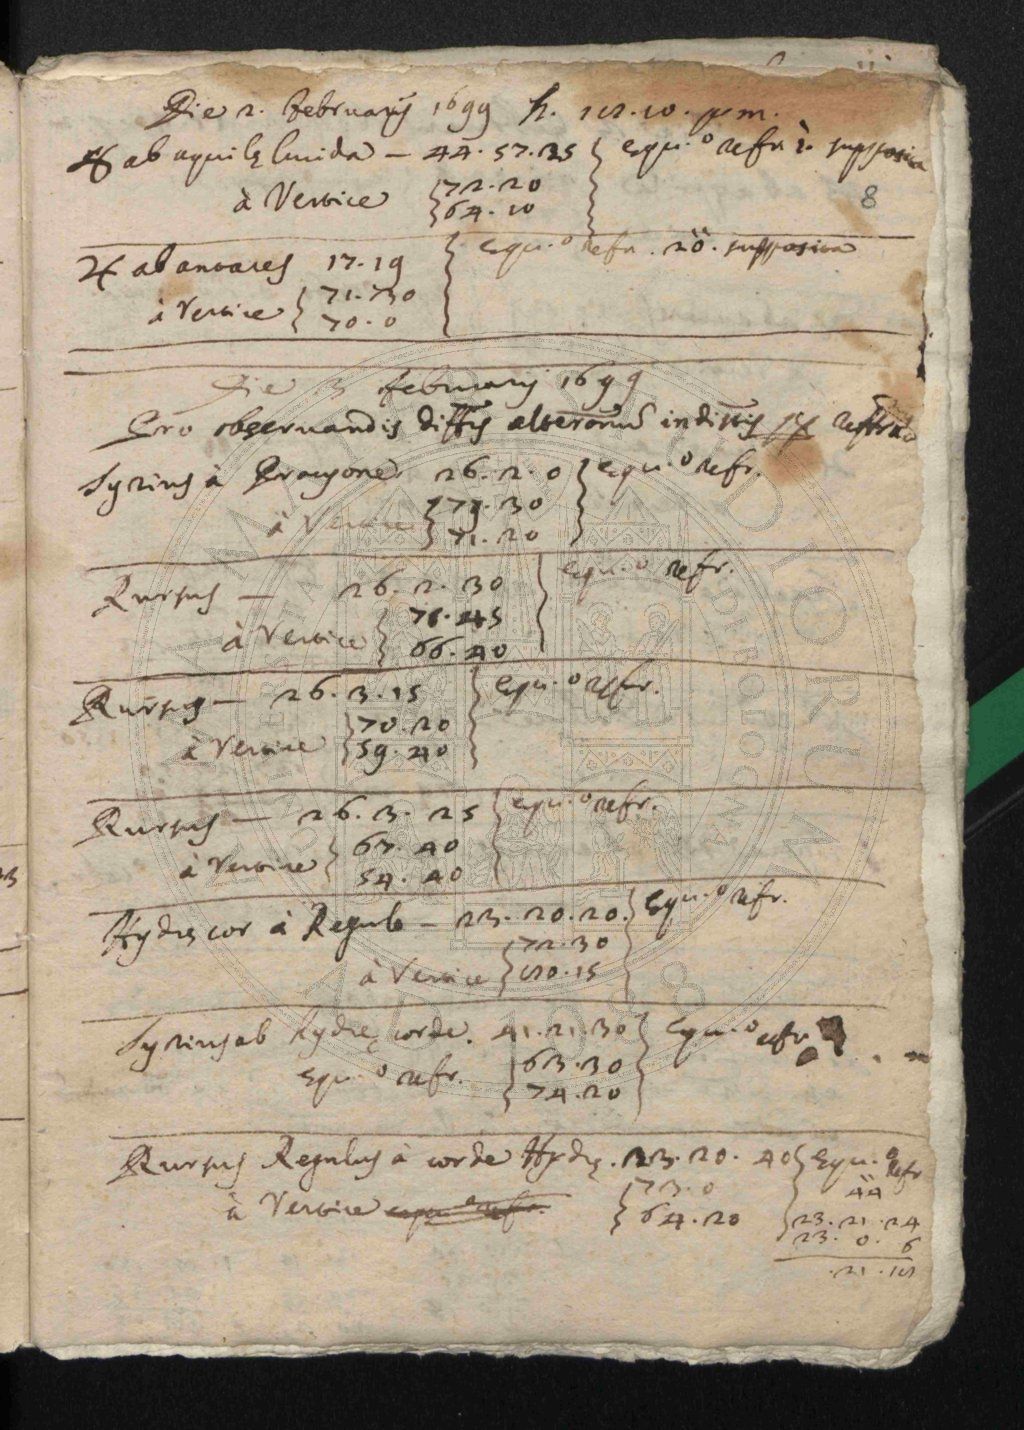 Die 2. Februarij 1699 h. p.m.
♃ ab aquilę lucida — 44.57.35 equ.o refr. supposita
à Vertice 72.20
64.10
8
♃ ab antares 17.19 equ.o refr. 20. supposita
à Vertice 71.30
70.0
Die 3 februarij 1699
Pro obseruandis
Syrius à Procyone 26.2.0 equ.o refr.
à Vertice 79.30
71.20
Rursus — 26.2.30 equ.o refr.
à Vertice 76.45
66.40
Rursus — 26.3.15 equ.o refr.
à Vertice 70.20
59.40
Rursus — 26.3.25 equ.o refr.
à Vertice 67.40
54.40
Hydrę cor à Regulo — 23.20.20. equ.o refr.
à Vertice 72.30
60.15
Syrius ab hydrę corde. 41.21.30 equ.o refr.
equ.o refr. 63.30
74.20
Rursus Regulus à corde Hydrę. 23.20.40 equ.o refr
à Vertice 73.0 44
64.20 23.21.24
23.0.6
.21.18
ALMA MATER STUDIORUM
A.D. 1088